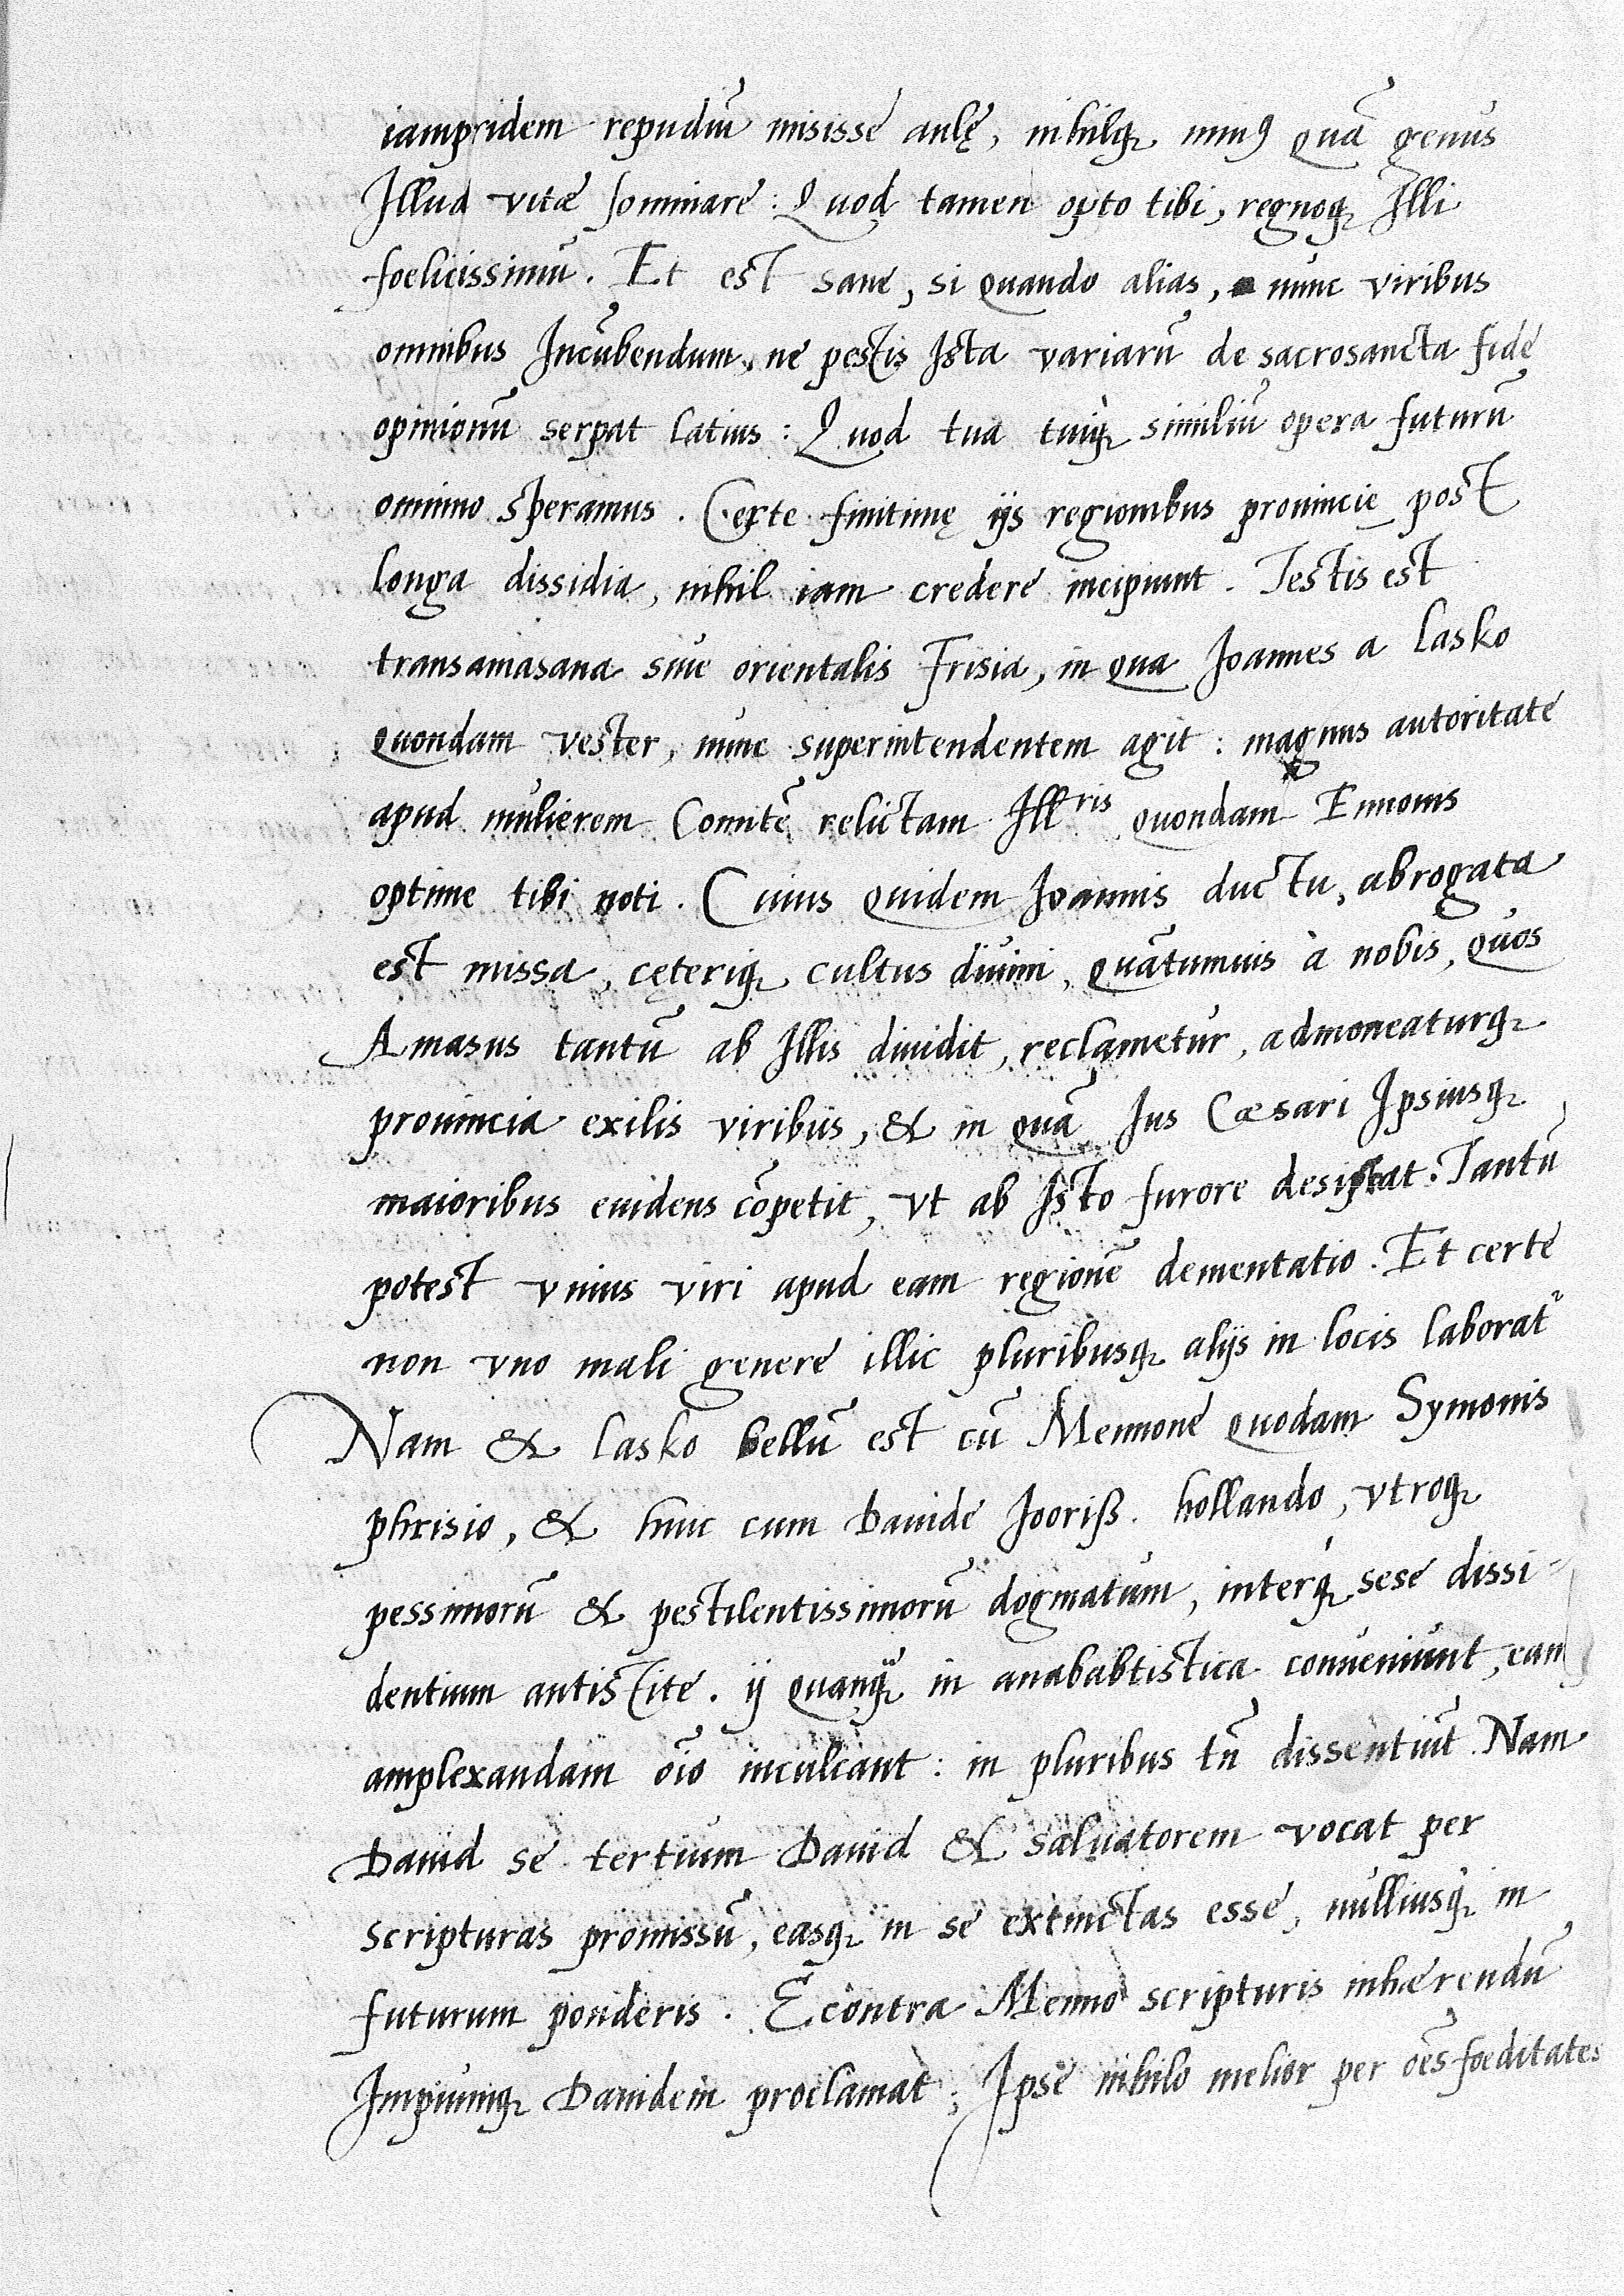 iampridem repudiũ misisse aulę, nihilq̢ minꝰ quã genus
Illud vitæ somniare: Quod tamen opto tibi, regnoq̢ Illi
foelicissimũ. Et est sane, si quando alias, nunc viribus
omnibus Incũbendum, ne pestis Ista variarũ de sacrosancta fide
opinionũ serpat latius: Quod tua tuiq̢ similiũ opera futurũ
omnino speramus. Certe finitimę ijs regionibus prouincię post
longa dissidia, nihil iam credere incipiunt. Testis est
transamasana siue orientalis Frisia, in qua Ioannes a Lasko
quondam vester, nunc superintendentem agit: magnus autoritate
apud mulierem Comitẽ relictam Ill^ris quondam Ennonis
optime tibi noti. Cuius quidem Ioannis ductu, abrogata
est missa, cęteriq̢ cultus diuini, quãtumuis à nobis, quos
Amasus tantũ ab Illis diuidit, reclametur, admoneaturq̢
prouincia exilis viribus, & in quã Ius Cæsari Ipsiusq̢
maioribus euidens cõpetit, vt ab Isto furore desistat. Tantũ
potest vnius viri apud eam regionẽ dementatio. Et certe
non vno mali genere illic pluribusq̢ alijs in locis laborat᷑
Nam & Lasko bellũ est cũ Mennone quodam Symonis
phrisio, & huic cum Dauide Jooriß. hollando, vtroq̢
pessimorũ & pestilentissimorũ dogmatum, interq̢ sese dissi-
dentium antistite. ij quanq̢ in anababtistica conueniunt, eam
amplexandam oĩo inculcant: in pluribus tñ dissentiũt. Nam
Dauid se tertium Dauid & saluatorem vocat per
scripturas promissũ, easq̢ in se extinctas esse, nulliusq̢ in
futurum ponderis. Econtra Menno scripturis inhærendũ
Impiumq̢ Dauidem proclamat: Ipse nihilo melior per oẽs foeditates